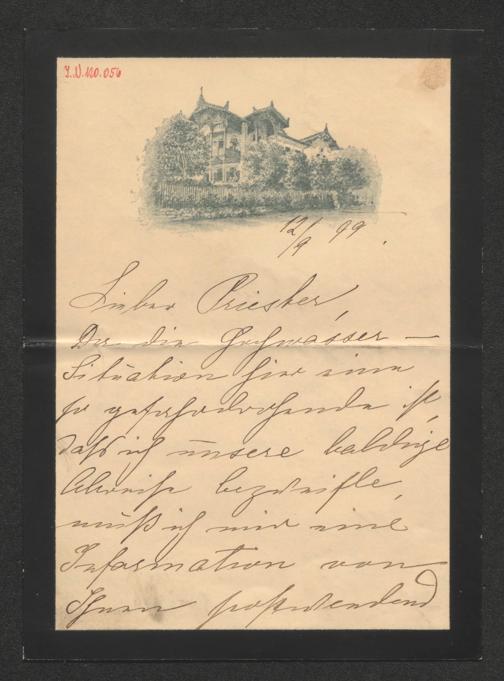 I.N. 120.056
12/9 99.
Lieber Priester,
Da die Hochwasser-
Situation hier eine
so gefahrdrohende ist,
daß ich unsere baldige
Abreise bezweifle,
muß ich mir eine
Information von
Ihnen postwendend